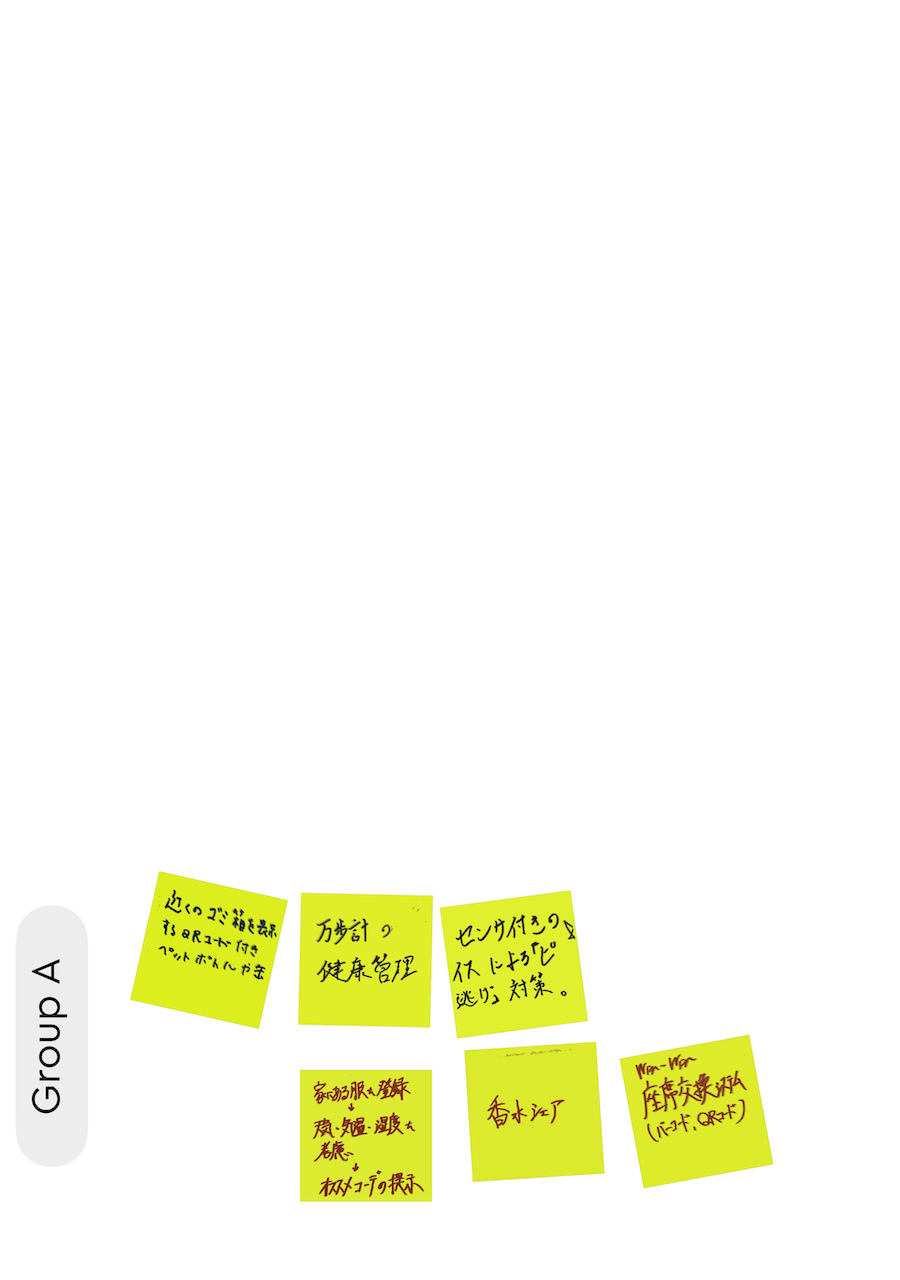 Group A
近くのゴミ箱を表示
するQRコード付き
ペットボトルや缶
万歩計の
健康管理
センサ付きの
イスによる「ピ
逃げ」対策。
家にある服を登録
↓
天気・気温・湿度を
考慮
↓
オススメコーデの提示
香水シェア
Win-Win
座席交換システム
(バーコード、QRコード)